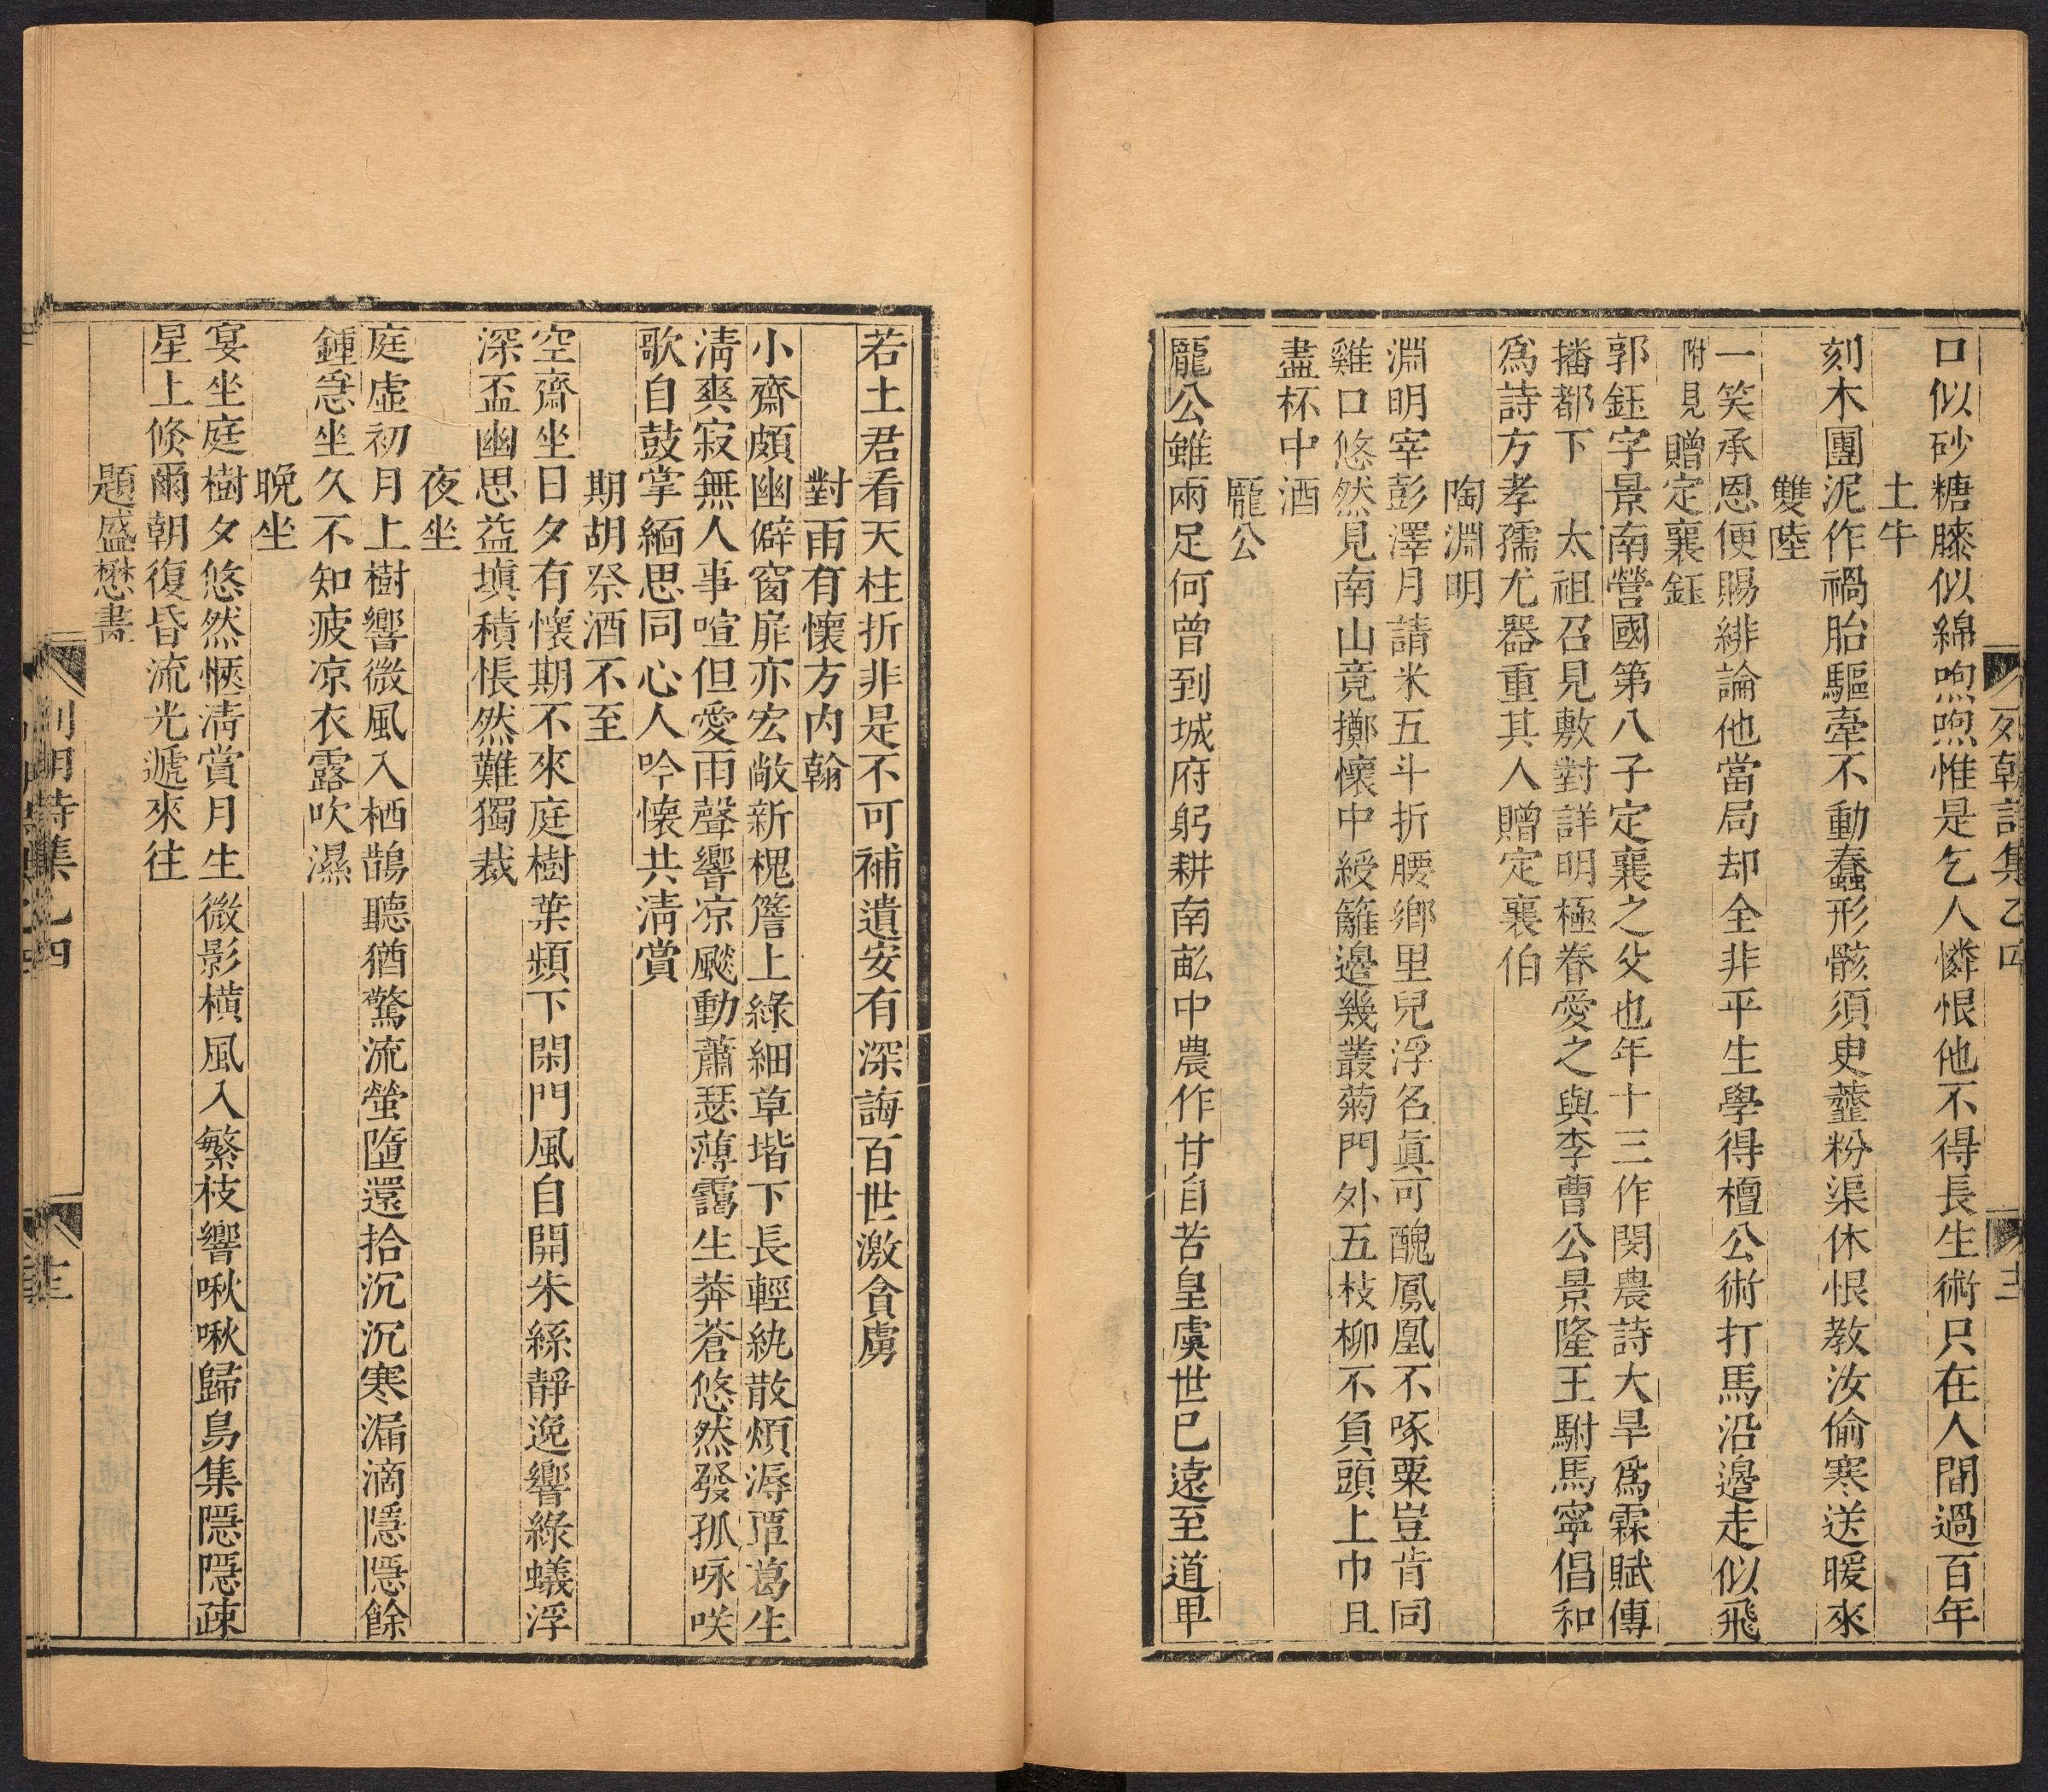 口似砂糖膝似綿喣喣惟是乞人憐恨他不得長生術只在人間過百年
土牛
刻木團泥作禍胎驅牽不動蠢形骸須臾虀粉渠休恨教汝偷寒送暖來
雙陸
一笑承恩便賜緋論他當局却全非平生學得檀公術打馬沿邊走似飛
附見贈定襄鈺
郭鈺字景南營國第八子定襄之父也年十三作閔農詩大旱爲霖賦傳
播都下 太祖召見敷對詳明極眷愛之與李曹公景隆王駙馬寧倡和
爲詩方孝孺尤器重其人贈定襄伯
陶淵明
淵明宰彭澤月請米五斗折腰鄉里兒浮名眞可醜鳳凰不啄粟豈肯同
雞口悠然見南山竟擲懷中綬籬邊幾叢菊門外五枝柳不負頭上巾且
盡杯中酒
龐公
龐公雖兩足何曾到城府躬耕南畝中農作甘自苦皇虞世已遠至道甲
列朝詩集乙四
若土君看天柱折非是不可補遺安有深誨百世激貪虜
對雨有懷方内翰
小齋頗幽僻窗扉亦宏敞新槐簷上綠細草堦下長輕紈散煩溽覃葛生
淸爽寂無人事喧但愛雨聲響凉颸動蕭瑟薄靄生莽蒼悠然發孤咏咲
歌自鼓掌緬思同心人吟懷共淸賞
期胡祭酒不至
空齋坐日夕有懷期不來庭樹葉頻下閑門風自開朱絲靜逸響綠蟻浮
深盃幽思益塡積悵然難獨裁
夜坐
庭虛初月上樹響微風入栖鵲聽猶驚流螢墮還拾沉沉寒漏滴隱隱餘
鍾急坐久不知疲凉衣露吹濕
晩坐
宴坐庭樹夕悠然愜淸賞月生微影横風入繁枝響啾啾歸鳥集隱隱疎
星上倐爾朝復昏流光遞來往
題盛懋畫
列朝詩集乙四